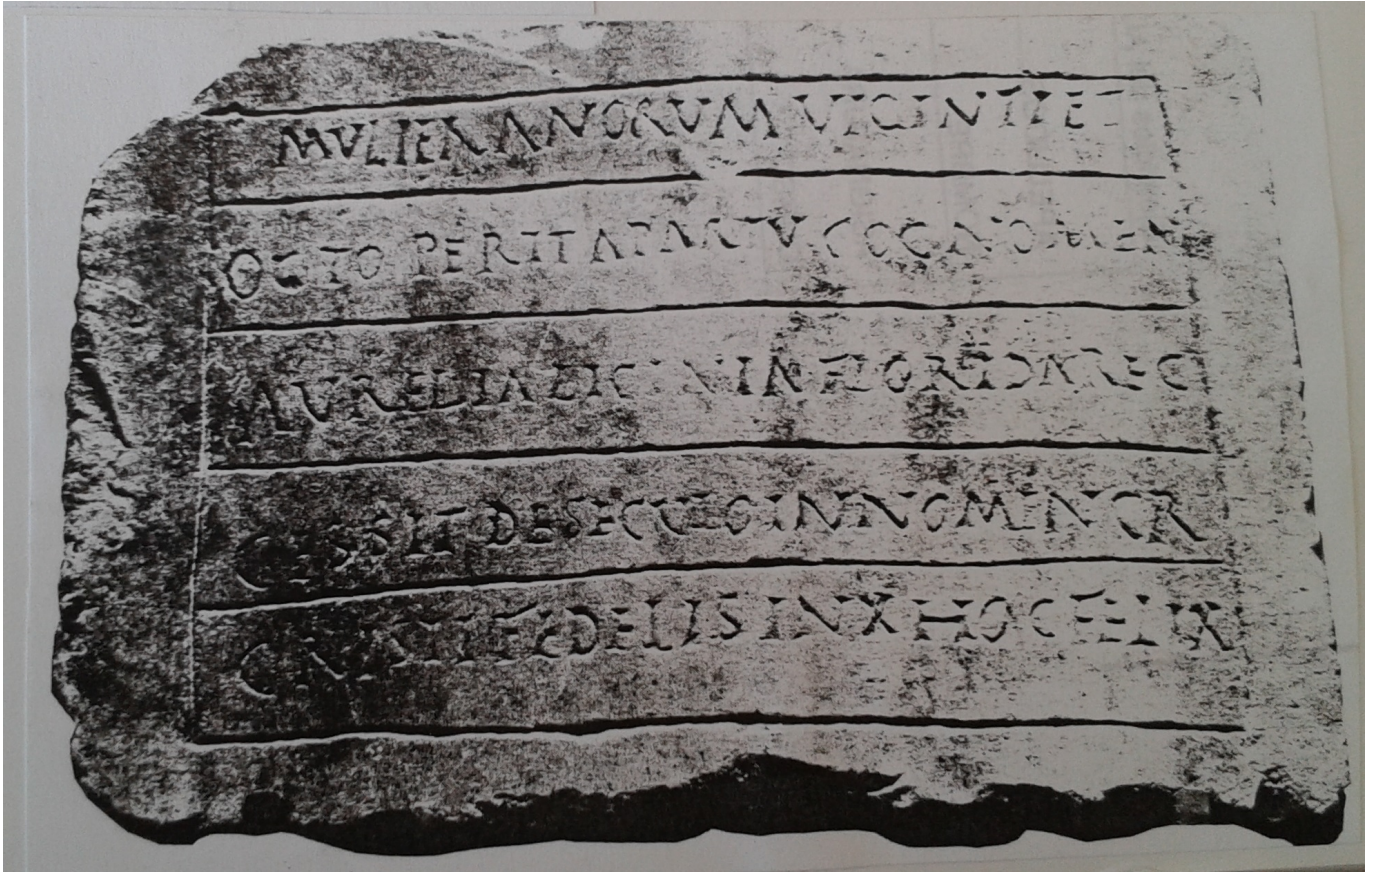 MULIER ANORUM VIGINTI ET
OCTO PERIIT A PARTV COGNOMEN
AURELIA LICINIA FLORIDA REC
ESSIT DE SECULO IN NOMEN CR
FIDELIS IN X HOC FELIX